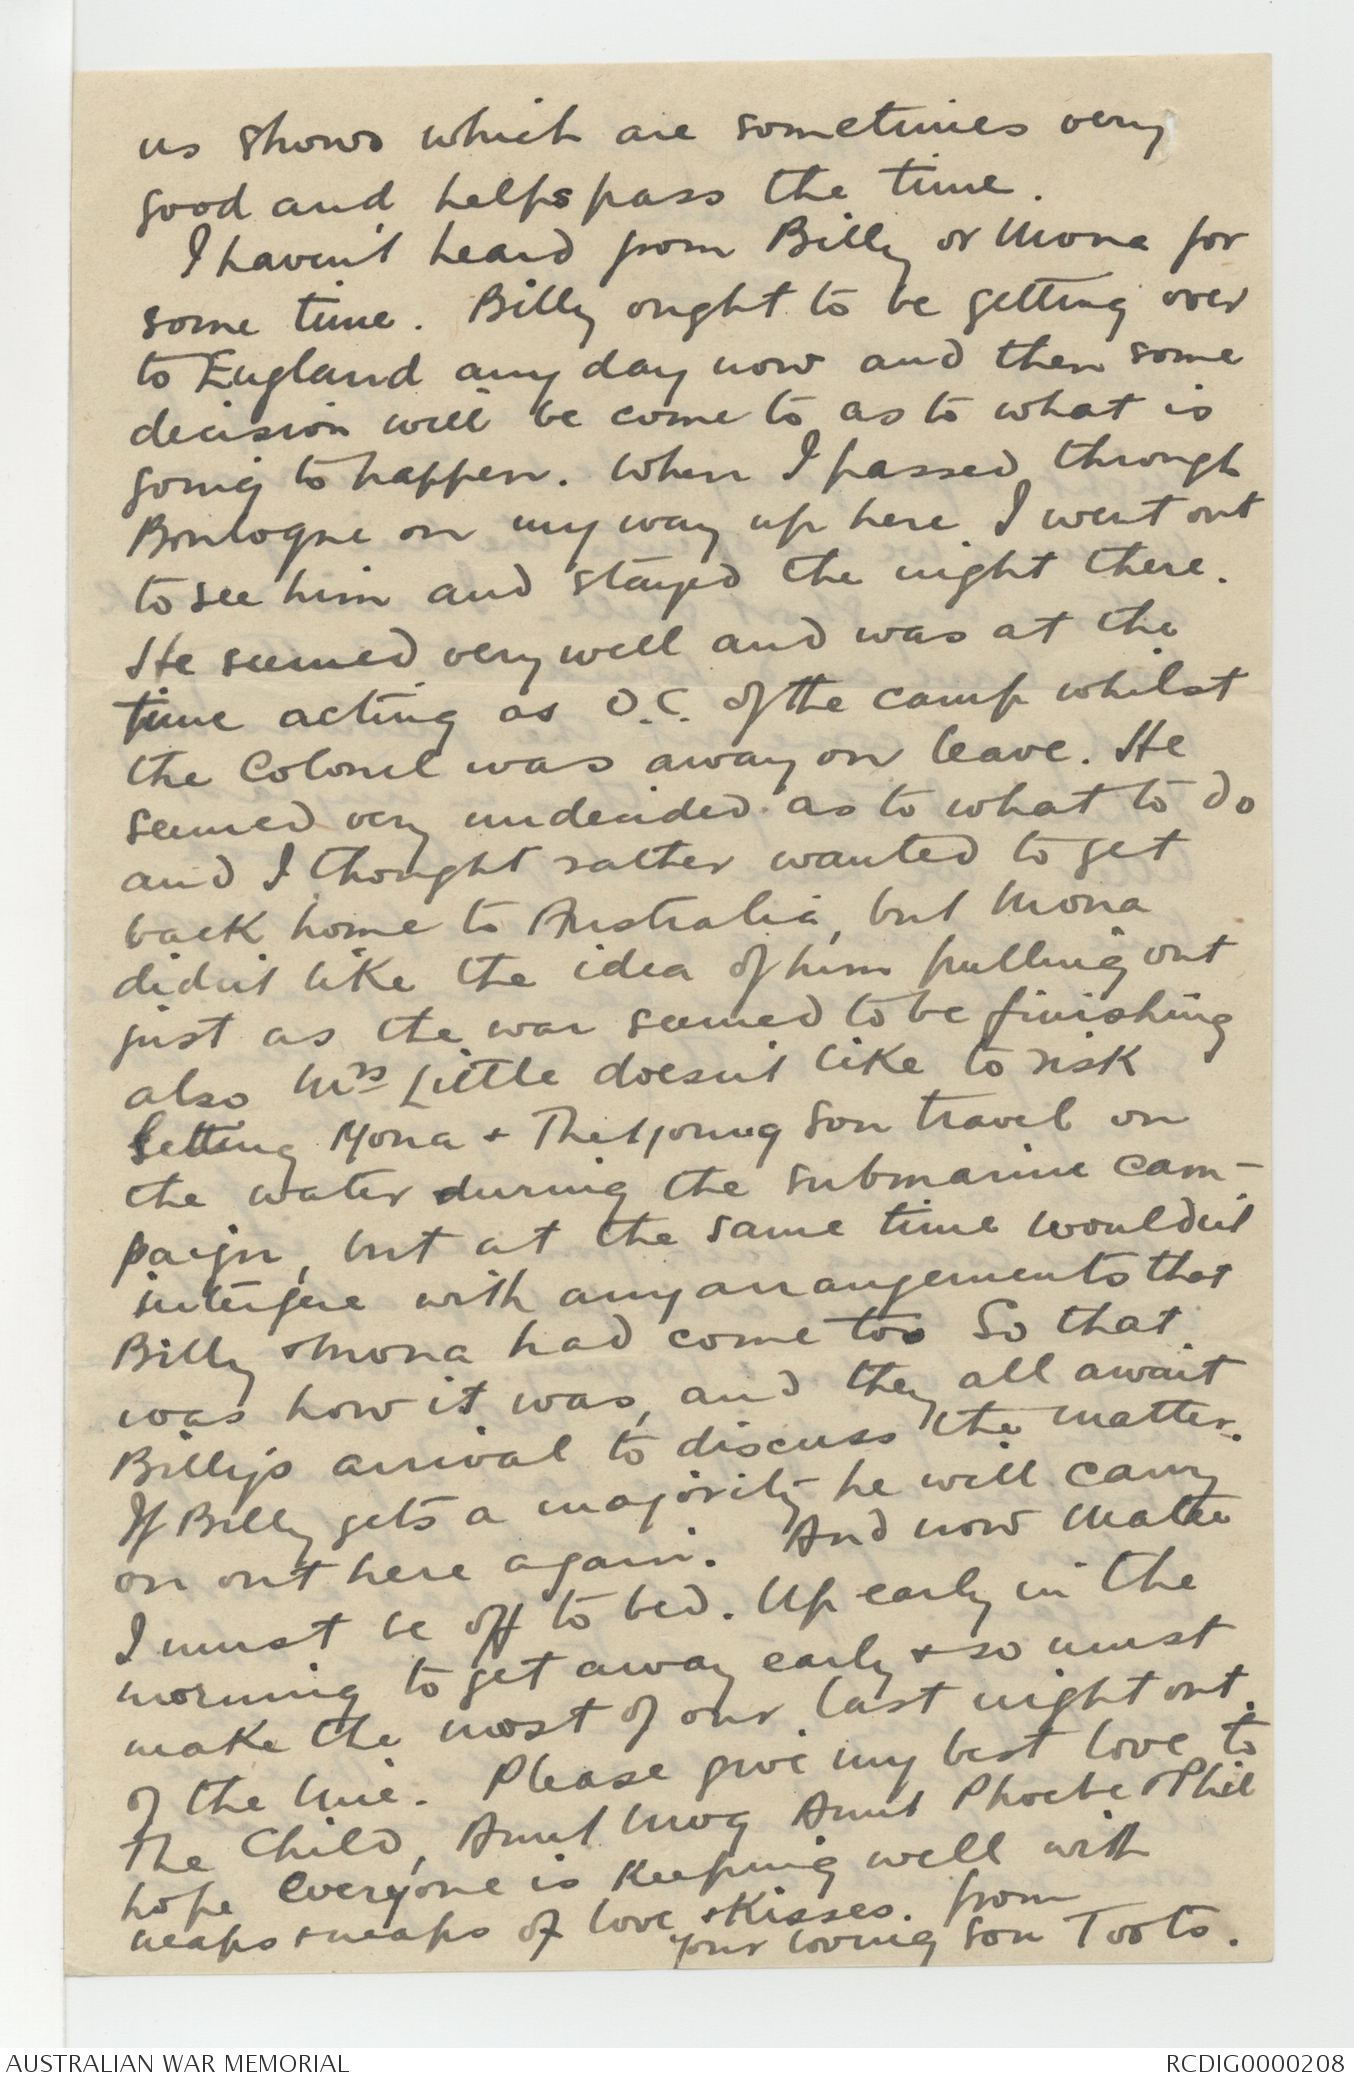 us shows which are sometimes very
good and helps pass the time.
I haven't heard from Billy or Mona for
some time. Billy ought to be getting over
to England any day now and then some
decision will be come to as to what is
going to happen. When I passed through
Boulogne on my way up here I went out
to see him and stayed the night there.
He seemed very well and was at the
time acting as O.C. of the camp whilst
the Colonel was away on leave. He
seemed very undecided as to what to do
and I thought rather wanted to get
back home to Australia, but Mona
didn't like the idea of him pulling out
just as the war seemed to be finishing
also Mrs Little doesn't like to risk
letting Mona + The young son travel on
the water during the submarine cam-
paign, but at the same time wouldn't
interfere with any arrangements that
Billy + Mona had come too So that
was how it was, and they all await
Billy's arrival to discuss the matter.
If Billy gets a majority he will carry
on out here again. And now Mater
I must be off to bed. Up early in the
morning to get away early + so must
make the most of our last night out
of the line. Please give my best love to
The Child, Aunt Mog Aunt Phoebe + Phil
hope everyone is keeping well with
heaps + heaps of love + Kisses. from
your loving son Toots.
AUSTRALIAN WAR MEMORIAL
RCDIG0000208